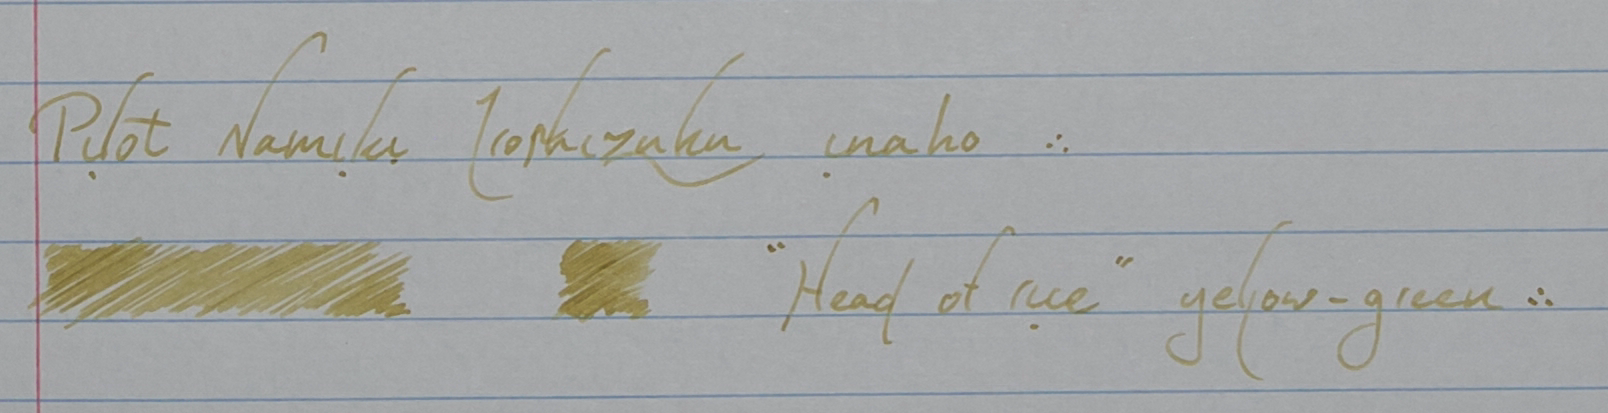 Pilot Namiki Iroshizuku inaho ∴
"Head of rice" yellow-green ∴